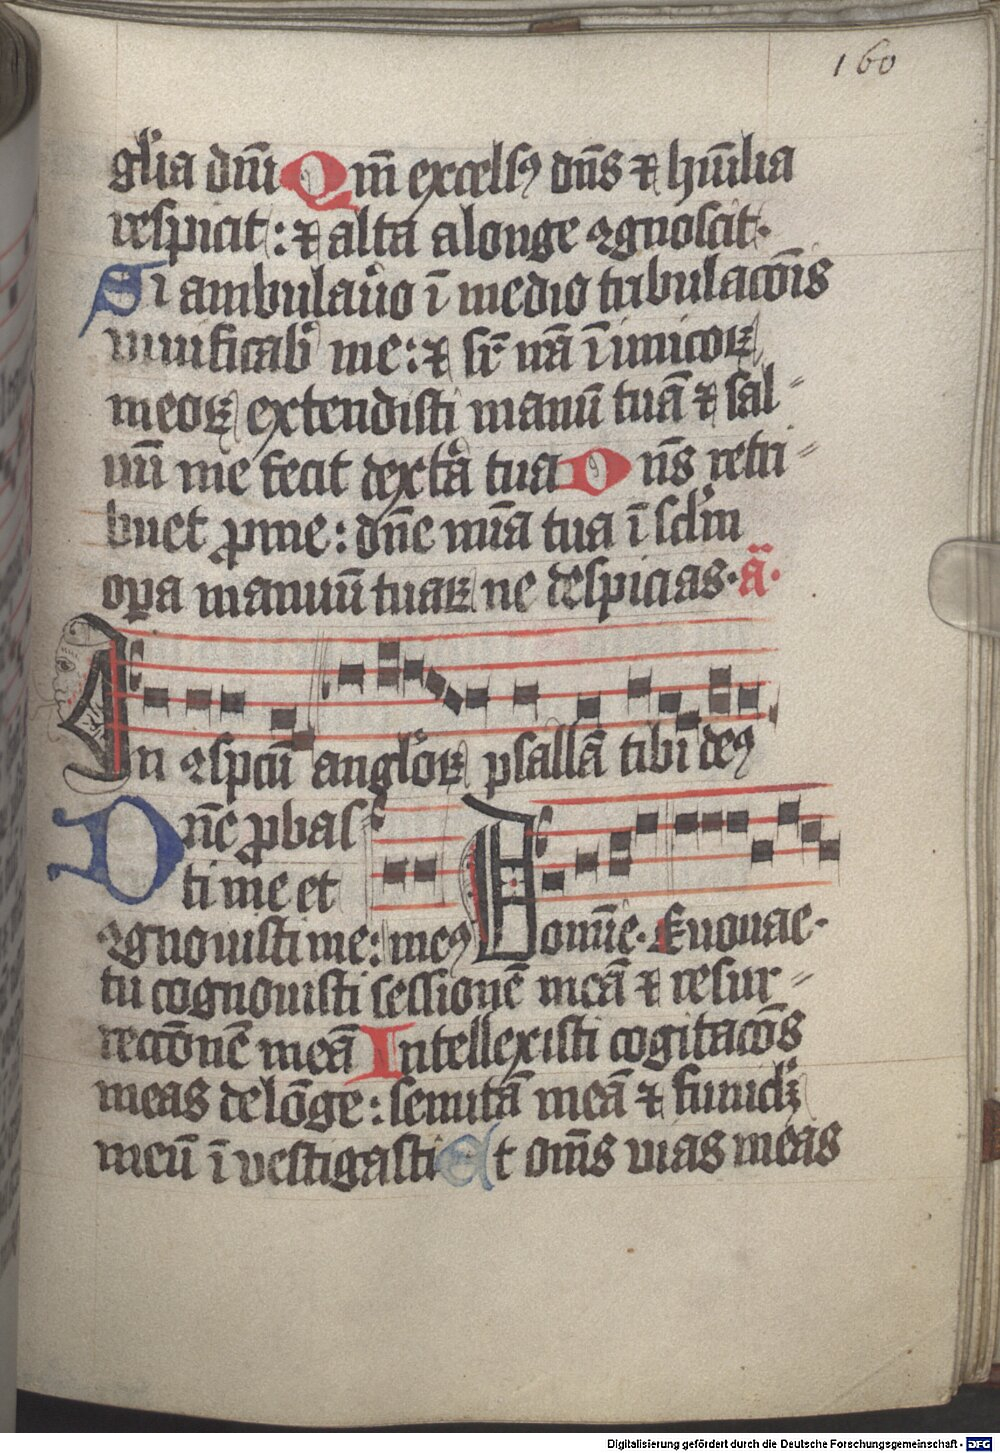 160
gl'ia dn̄i Qm̄ excelsꝰ dn̄s ⁊ hūilia
respicit: ⁊ alta a longe ꝯgnoscit.
Si ambulau'o ī medio tribulacōis
uiuificab' me: ⁊ sr̄ irā īimicoꝝ
meoꝝ extendisti manū tuā ⁊ sal-
uū me fecit dext'a tua Dn̄s retri-
buet ꝓ me: dn̄e mīa tua ī sc'lm
oꝑa manuū tuaꝝ ne despicias. a.
In ꝯspcū anglo'ꝝ psallā tibi deꝰ
Dn̄e ꝓbas-
ti me et
ꝯgnouisti me: meꝰ Domīe. Euouae.
tu cognouisti sessionē meā ⁊ resur-
reccōnē meā Intellexisti cogitacōs
meas de lōge: semitā meā ⁊ funicl'ꝫ
meū īvestigasti Et om̄s uias meas
Digitalisierung gefördert durch die Deutsche Forschungsgemeinschaft - DFG